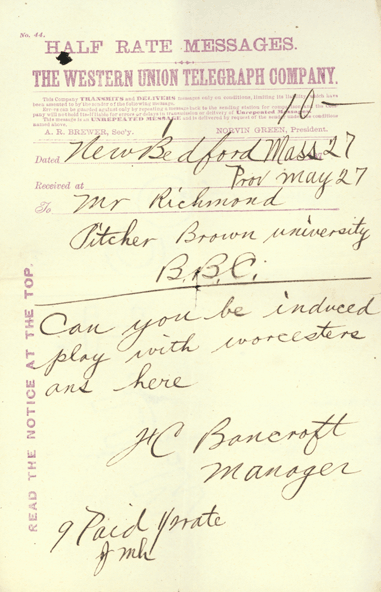 No. 44.
HALF RATE MESSAGES.
THE WESTERN UNION TELEGRAPH COMPANY.
This Company TRANSMITS and DELIVERS messages only on conditions, limiting its liability, which have
been assented to by the sender of the following message.
Errors can be guarded against only by repeating a message back to the sending station for comparison, and the
This message is an UNREPEATED MESSAGE and is delivered by request of the sender under the conditions
named above.
A. R. BREWER, Sec'y. NORVIN GREEN, President.
Dated New Bedford Mass 27
Received at Prov May 27
To Mr Richmond
Pitcher Brown university
B.B.C.
Can you be induced
play with worcesters
ans here
HC Bancroft
Manager
9 Paid ½ rate
READ THE NOTICE AT THE TOP.